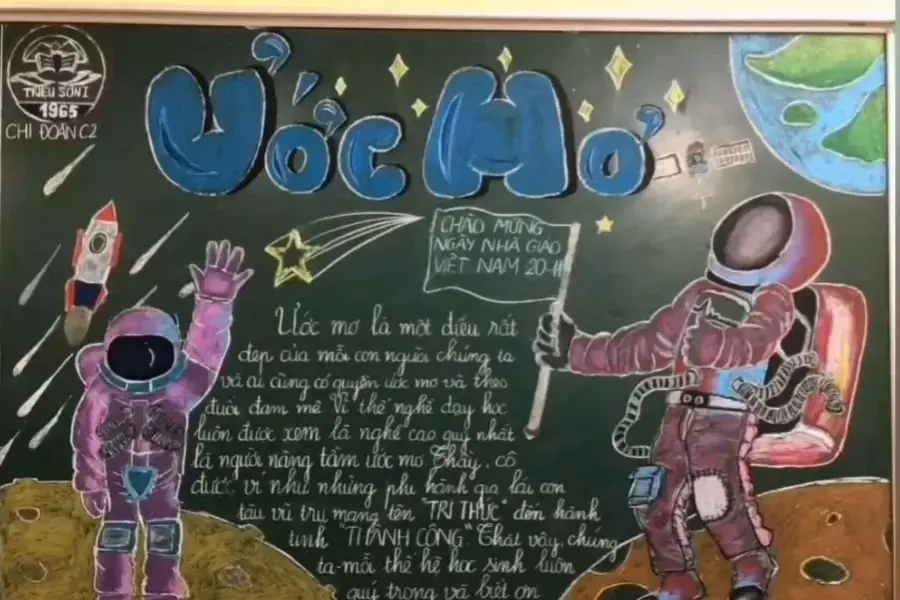 TRIỆU SƠN 1
1965
CHI ĐOÀN C2
ƯỚC MƠ
CHÀO MỪNG
NGÀY NHÀ GIÁO
VIỆT NAM 20-11
Ước mơ là một điều rất
đẹp của mỗi con người chúng ta
và ai cũng có quyền ước mơ và theo
đuổi đam mê. Vì thế nghề dạy học
luôn được xem là nghề cao quý nhất
là người nâng tầm ước mơ. Thầy, cô
được ví như những phi hành gia lái con
tàu vũ trụ mang tên "TRI THỨC" đến hành
tinh "THÀNH CÔNG". Thật vậy, chúng
ta-mỗi thế hệ học sinh luôn
quý trọng và biết ơn